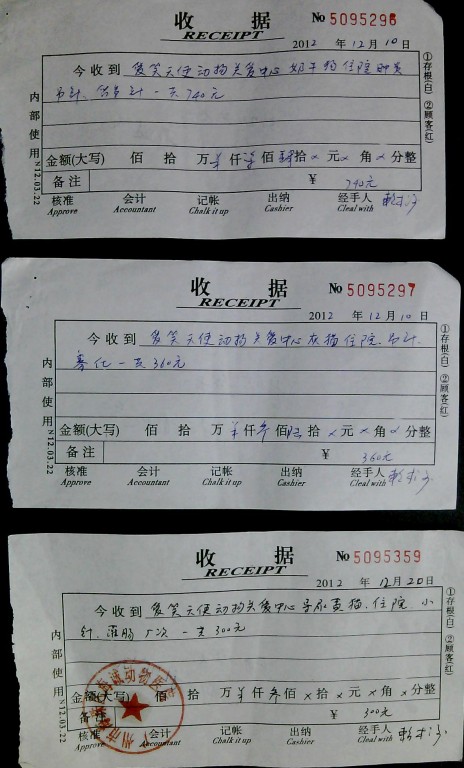 收 据 No 5095296
RECEIPT
2012 年 12 月 10 日
今收到 爱笑天使动物关爱中心 奶牛猫住院
吊针、 一共740元
金额(大写) 佰 拾 万 ¥ 仟 柒 佰 肆 拾 × 元 × 角 × 分整
备注 ¥ 740元
核准 会计 记帐 出纳 经手人
Approve Accountant Chalk it up Cashier Cleal with
内部使用 N12.03.22
①存根(白) ②顾客(红)
收 据 No 5095297
RECEIPT
2012 年 12 月 10 日
今收到 爱笑天使动物关爱中心灰猫住院、吊针
雾化一共360元
金额(大写) 佰 拾 万 ¥ 仟 叁 佰 陆 拾 × 元 × 角 × 分整
备注 ¥ 360元
核准 会计 记帐 出纳 经手人
Approve Accountant Chalk it up Cashier Cleal with
内部使用 N12.03.22
①存根(白) ②顾客(红)
收 据 No 5095359
RECEIPT
2012 年 12 月 20 日
今收到 爱笑天使动物关爱中心导尿黄猫、住院 小
针、灌肠 一共300元
金额(大写) 佰 拾 万 ¥ 仟 叁 佰 × 拾 × 元 × 角 × 分整
备注 ¥ 300元
核准 会计 记帐 出纳 经手人
Approve Accountant Chalk it up Cashier Cleal with
内部使用 N12.03.22
①存根(白) ②顾客(红)